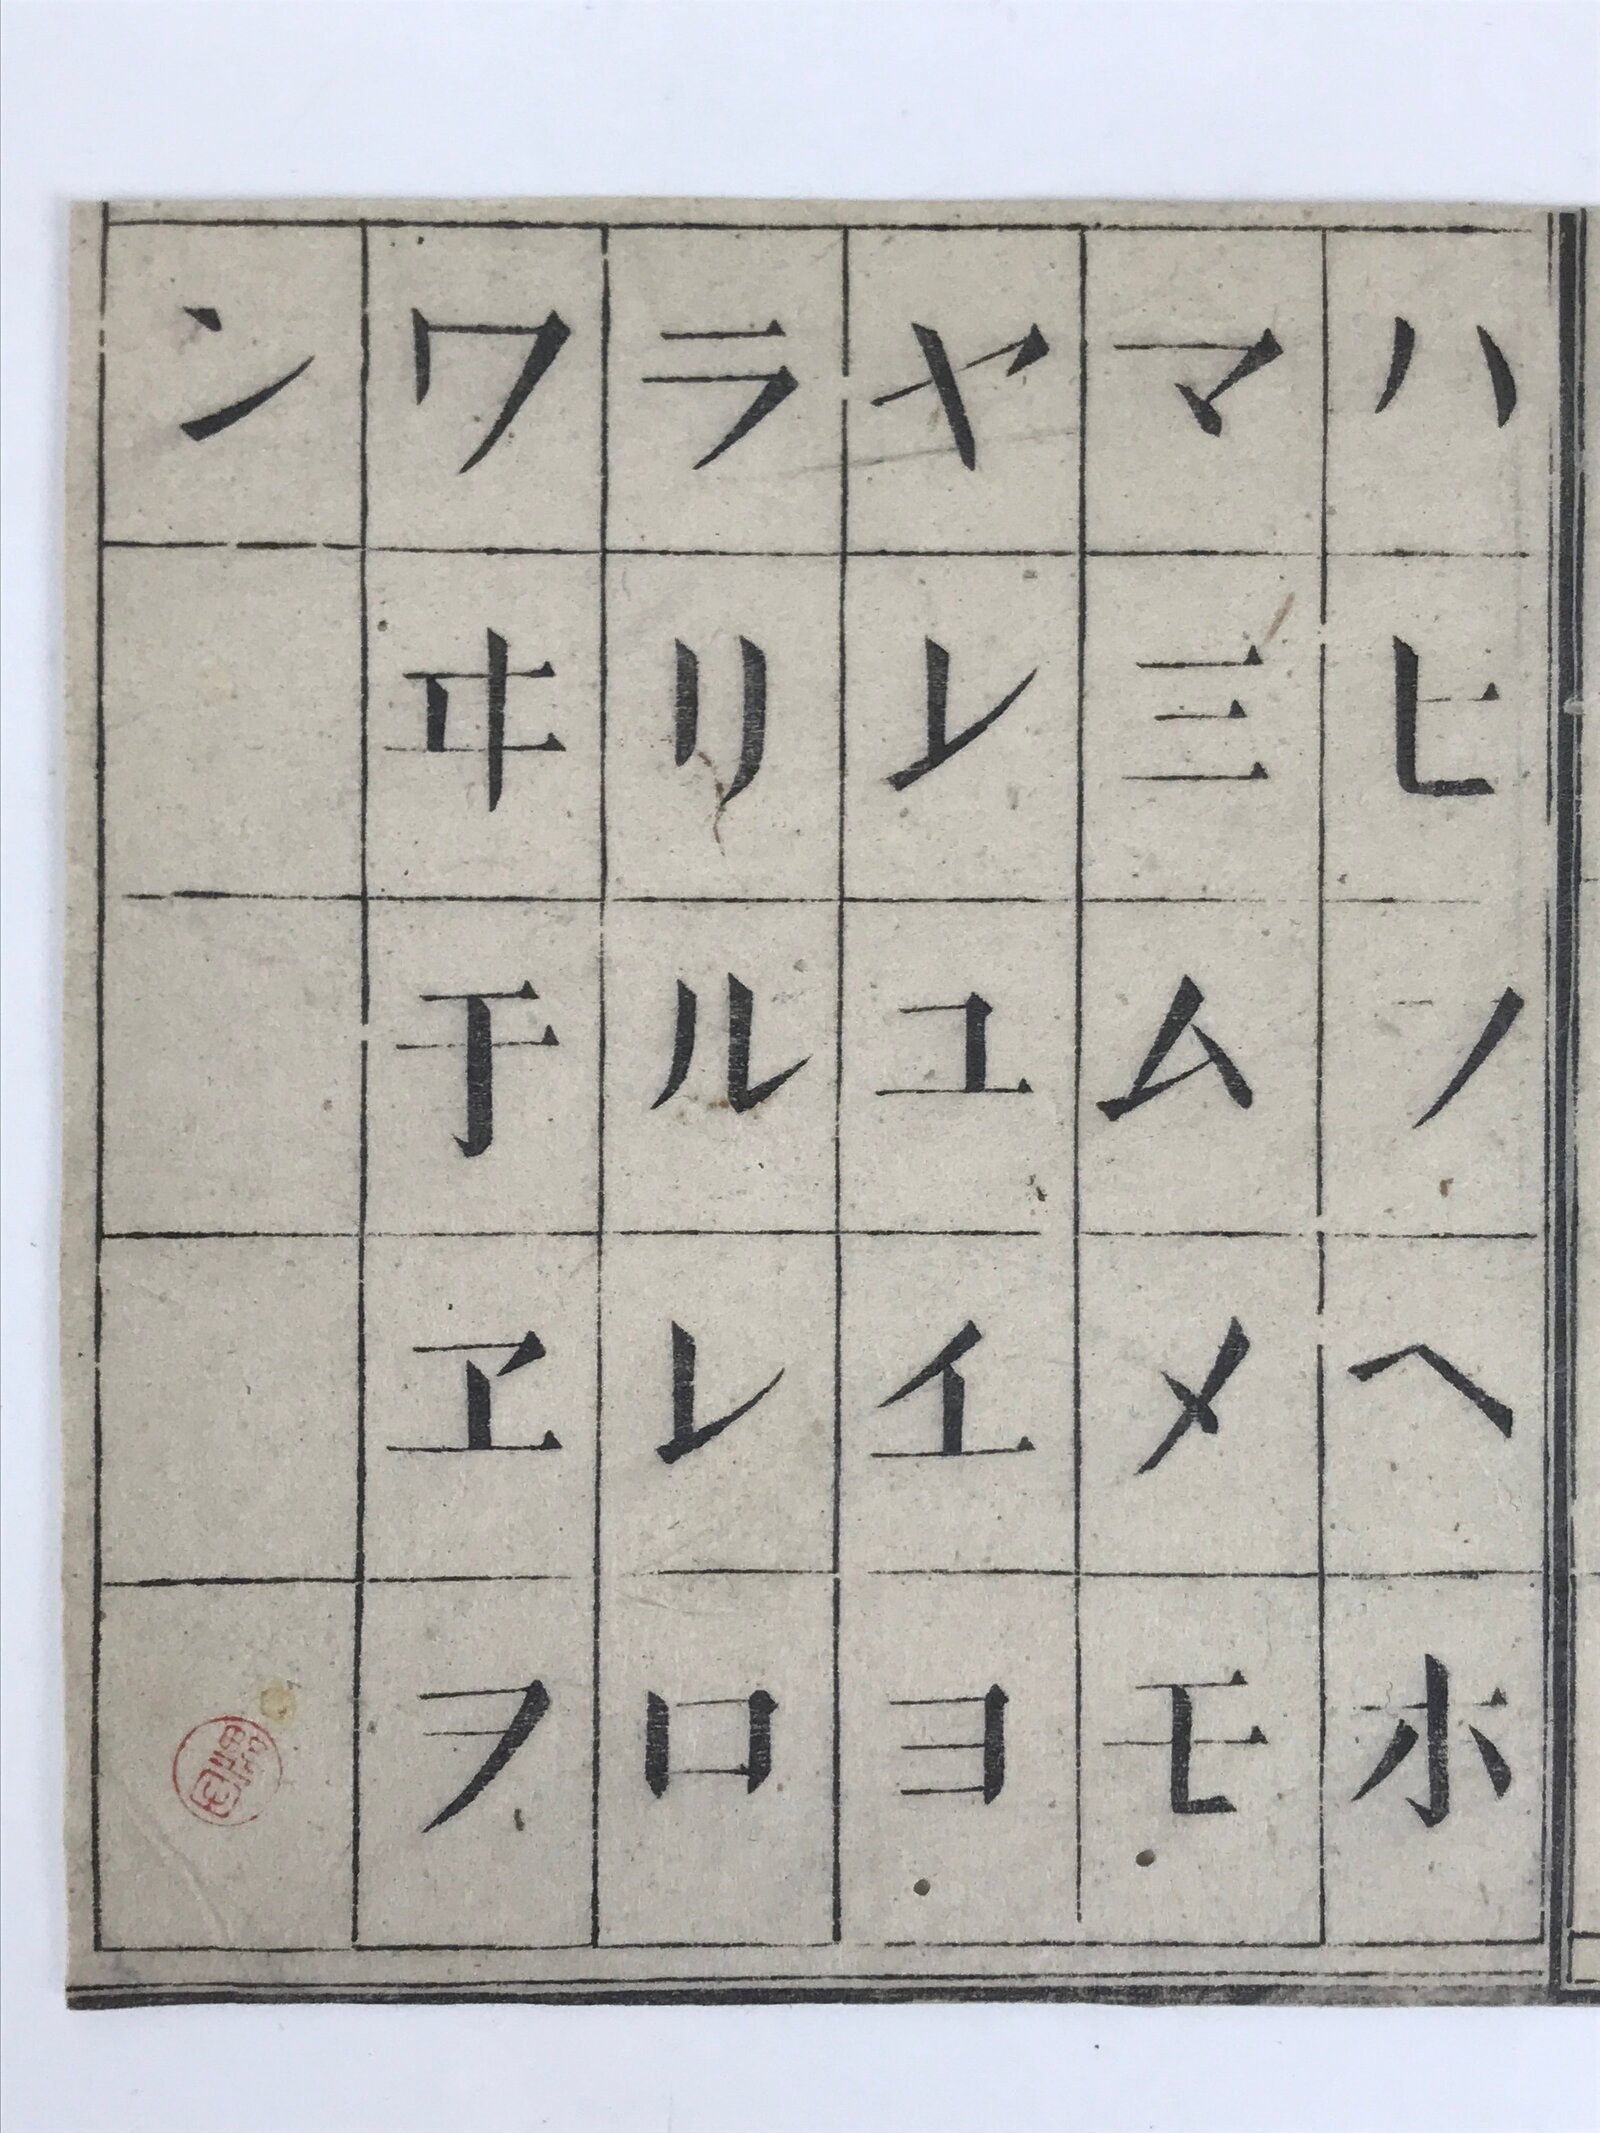 ハヒフヘホ
マ三ムメモ
ヤ𛄠ユ𛄡ヨ
ラリルレロ
ワヰ于ヱヲ
ン